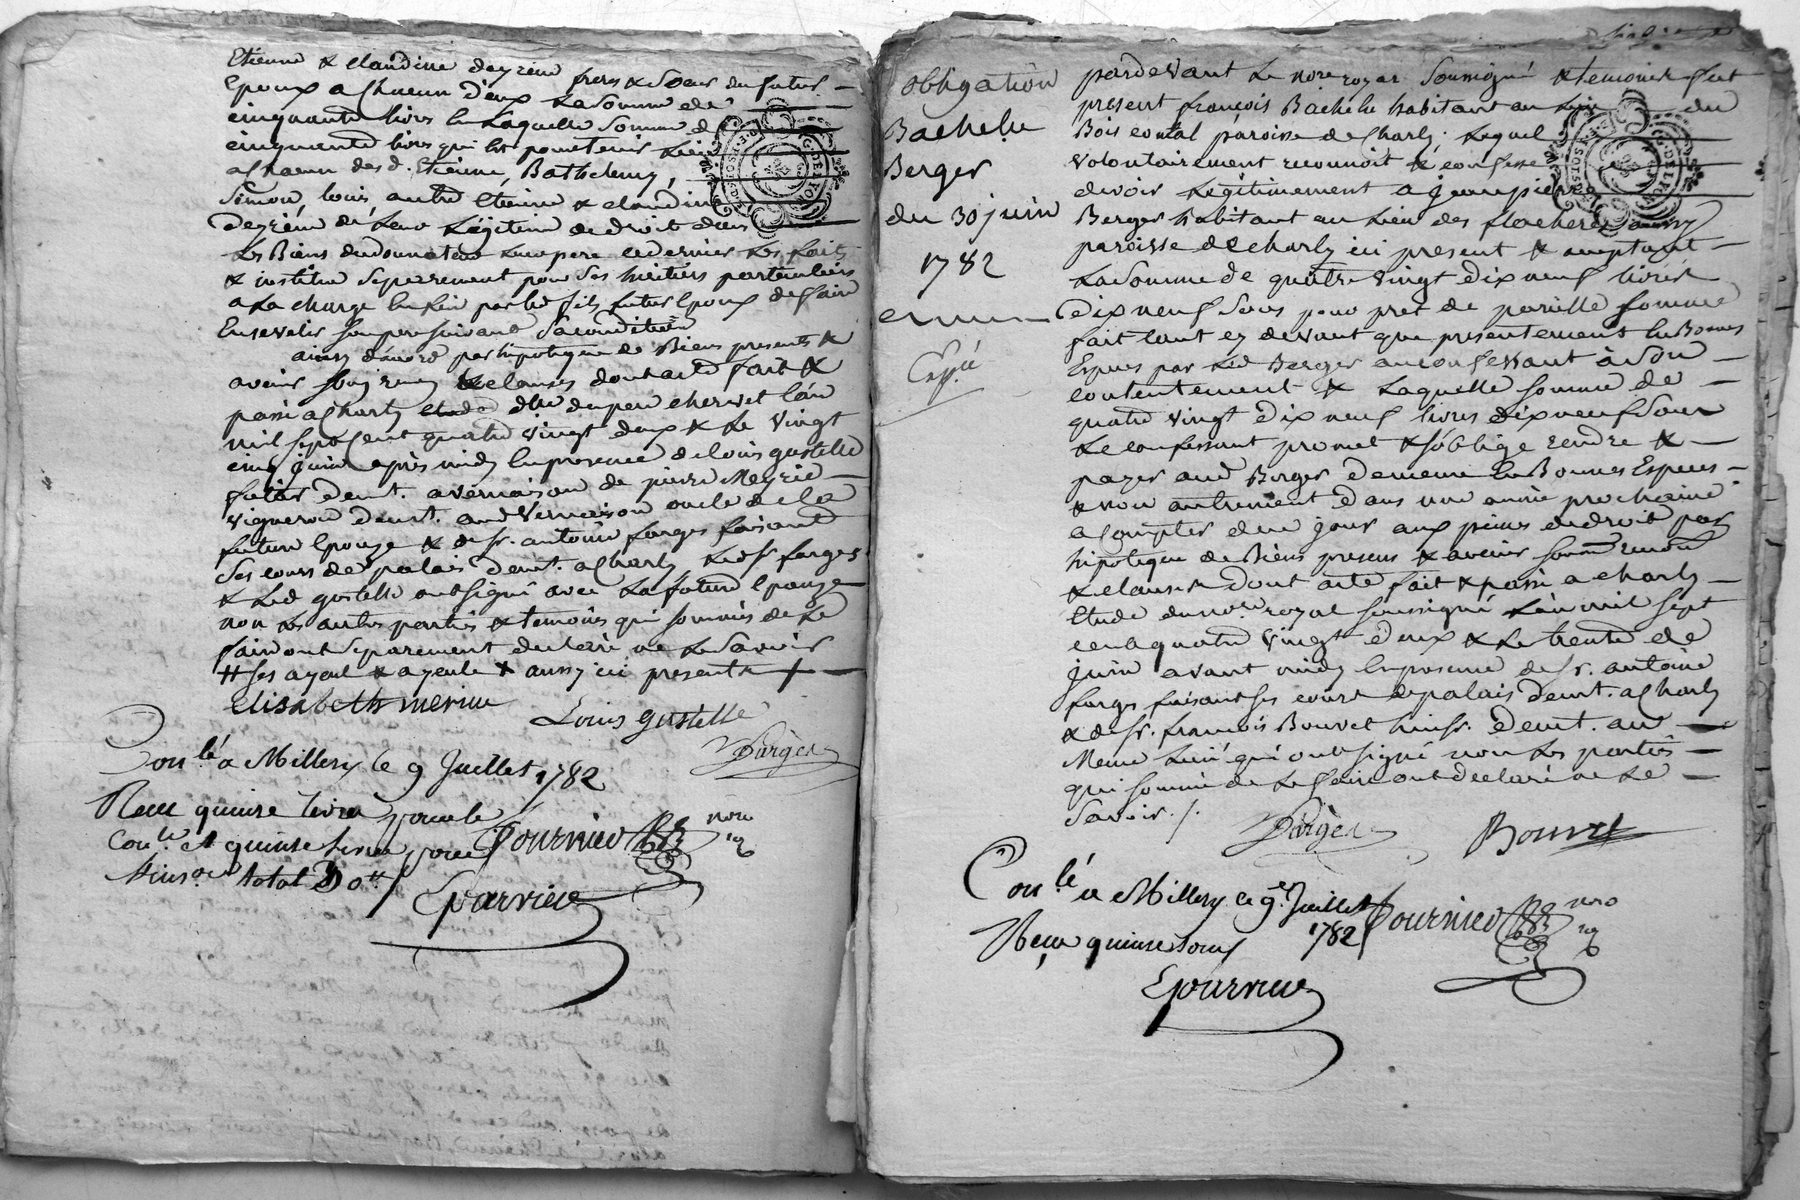 Etienne & claudine deyrieu freres & Soeur du futur
Epoux a chacun d'eux La Somme de
cinquante livres Laquelle Somme de
cinquante livres qui Est pour tenir Lieu
a chacun des d. Etienne, Barthelemy,
Simon, louis, autre Etienne & claudine
Deyrieu de Leur Légitime de droit dans
Les Biens du donnateur Leur pere ce dernier Les fait
& institue Separement pour Ses heritiers particuliers
a La charge par led fils futur Epoux de faire
Ensevelir Son pere Suivant Sa condition
ainsy d'accord par hipoteque de Biens presents &
avenir & clauses dont acte fait &
passé a Charly du peu chervet L'an
mil sept Cent quatre vingt deux & Le vingt
cinq juin après midy En presence de louis gustelle
demt. a vernaison de pierre Meyrie
vigneron demt. aud Vernaison oncle de la
future Epouze & de Sr. antoine farges faisant
Ses cours de palais demt. a Charly Led Sr farges
& Led gustelle ont signé avec La future Epouze
non Les autres parties & temoins qui Sommés de Le
faire ont Separement declaré ne Le Savoir
# Ses ayeul & ayeule & aussy ici presents +
elisabeth merieu
Louis gustelle
farges
Con.lé a Millery le 9 Juillet 1782
Reçu quinze livres pour le
Con.le et quinze livres pour
l'inson total 30 ₶
Fournier
nore
rg
Eparvieu
obligation
Bachelu
Berger
du 30 juin
1782
Expié
pardevant Le nore royal Soussigné & temoins fut
present françois Bachelu habitant au Lieu du
Bois contal paroisse de Charly. Lequel
volontairement reconnoit & confesse
devoir Légitimement a jean pierre
Berger habitant au Lieu des flacheres aussy
paroisse de charly ici present & acceptant
La Somme de quatre vingt Dix neuf livres
Dix neuf Sous pour pret de pareille Somme
fait tant cy devant que presentement En Bonnes
Especes par Led Berger au confessant à Son
contentement & Laquelle Somme de
quatre vingt dix neuf livres dix neuf Sous
Le confessant promet & s'oblige rendre &
payer aud Berger de meme En Bonnes Especes
& non autrement dans une année prochaine
a Compter de ce jour aux peines de droit par
hipoteque de Biens presens & avenir
& clauses Dont acte fait & passé a charly
Etude du nore royal Soussigné L'an mil Sept
cent quatre vingt deux & Le trente de
juin avant midy En presence de Sr. antoine
farges faisant Ses cours de palais demt. a Charly
& de Sr. francois Bouvet huissr. demt. au
Meme Lieu qui ont signé non Les parties
qui Sommé de Le faire ont declaré ne Le
Savoir ./.
farges
Bouvet
Con.lé a Millery le 9e Juillet
1782
Reçu quinze sous
Fournier
nore
rg
Eparvieu